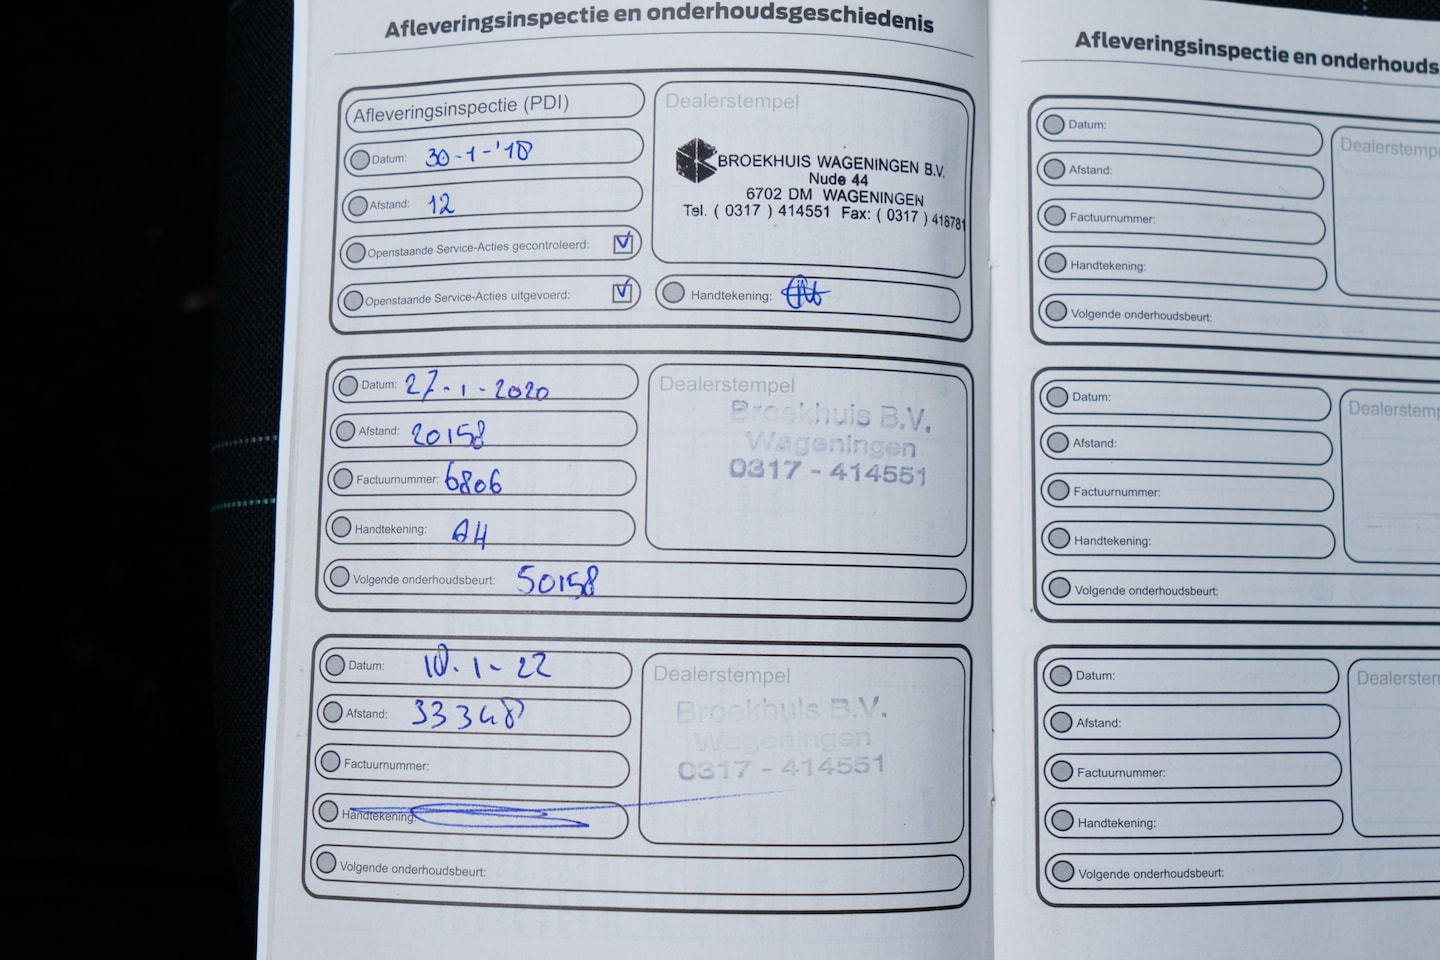 Afleveringsinspectie en onderhoudsgeschiedenis
Afleveringsinspectie (PDI)
Datum: 30-1-'18
Afstand: 12
Openstaande Service-Acties gecontroleerd: V
Openstaande Service-Acties uitgevoerd: V
Dealerstempel
BROEKHUIS WAGENINGEN B.V.
Nude 44
6702 DM WAGENINGEN
Tel. ( 0317 ) 414551 Fax: ( 0317 ) 418781
Handtekening:
Datum: 27-1-2020
Afstand: 20158
Factuurnummer: 6806
Handtekening: AH
Volgende onderhoudsbeurt: 50158
Dealerstempel
Broekhuis B.V.
Wageningen
0317 - 414551
Datum: 10-1-22
Afstand: 33348
Factuurnummer:
Handtekening:
Volgende onderhoudsbeurt:
Dealerstempel
Broekhuis B.V.
Wageningen
0317 - 414551
Afleveringsinspectie en onderhouds
Datum:
Afstand:
Factuurnummer:
Handtekening:
Volgende onderhoudsbeurt:
Dealerstempe
Datum:
Afstand:
Factuurnummer:
Handtekening:
Volgende onderhoudsbeurt:
Dealerstemp
Datum:
Afstand:
Factuurnummer:
Handtekening:
Volgende onderhoudsbeurt:
Dealerstem